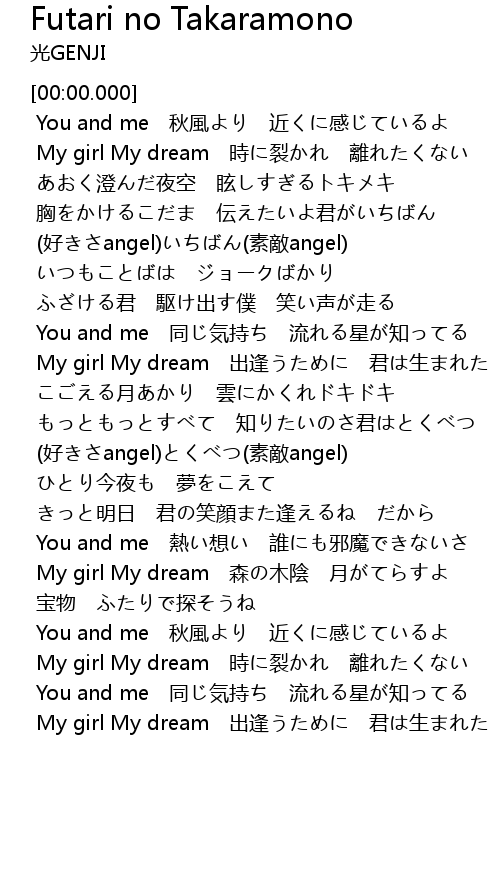 Futari no Takaramono
光GENJI
[00:00.000]
You and me　秋風より　近くに感じているよ
My girl My dream　時に裂かれ　離れたくない
あおく澄んだ夜空　眩しすぎるトキメキ
胸をかけるこだま　伝えたいよ君がいちばん
(好きさangel)いちばん(素敵angel)
いつもことばは　ジョークばかり
ふざける君　駆け出す僕　笑い声が走る
You and me　同じ気持ち　流れる星が知ってる
My girl My dream　出逢うために　君は生まれた
こごえる月あかり　雲にかくれドキドキ
もっともっとすべて　知りたいのさ君はとくべつ
(好きさangel)とくべつ(素敵angel)
ひとり今夜も　夢をこえて
きっと明日　君の笑顔また逢えるね　だから
You and me　熱い想い　誰にも邪魔できないさ
My girl My dream　森の木陰　月がてらすよ
宝物　ふたりで探そうね
You and me　秋風より　近くに感じているよ
My girl My dream　時に裂かれ　離れたくない
You and me　同じ気持ち　流れる星が知ってる
My girl My dream　出逢うために　君は生まれた